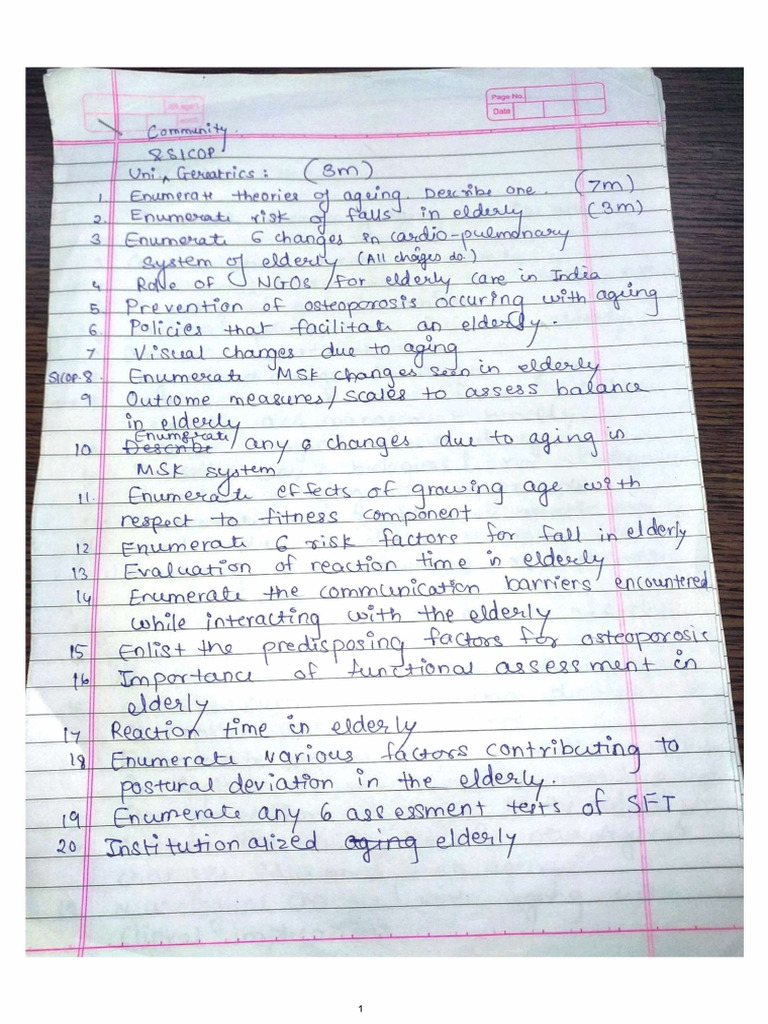 Page No.
Date
Community
& SICOP
Uni ^ Geriatrics : (3m)
1. Enumerate theories of ageing. Describe one. (7m)
2. Enumerate risk of falls in elderly (3m)
3 Enumerate 6 changes in cardio-pulmonary
system of elderly (All chages do.)
4 Role of NGOs for elderly care in India
5. Prevention of osteoporosis occuring with aging
6. Policies that facilitate an elderly.
7 Visual changes due to aging
SICOP. 8. Enumerate MSK changes seen in elderly
9 Outcome measures/scales to assess balance
in elderly
Enumerate
10 Describe / any 6 changes due to aging in
MSK system
11. Enumerate effects of growing age with
respect to fitness component
12 Enumerate 6 risk factors for fall in elderly
13 Evaluation of reaction time in elderly
14 Enumerate the communication barriers encountered
while interacting with the elderly
15 Enlist the predisposing factors for osteoporosis
16 Importance of functional assessment in
elderly
17 Reaction time in elderly
18 Enumerate various factors contributing to
postural deviation in the elderly.
19 Enumerate any 6 assessment tests of SFT
20 Institutionalized aging elderly
1